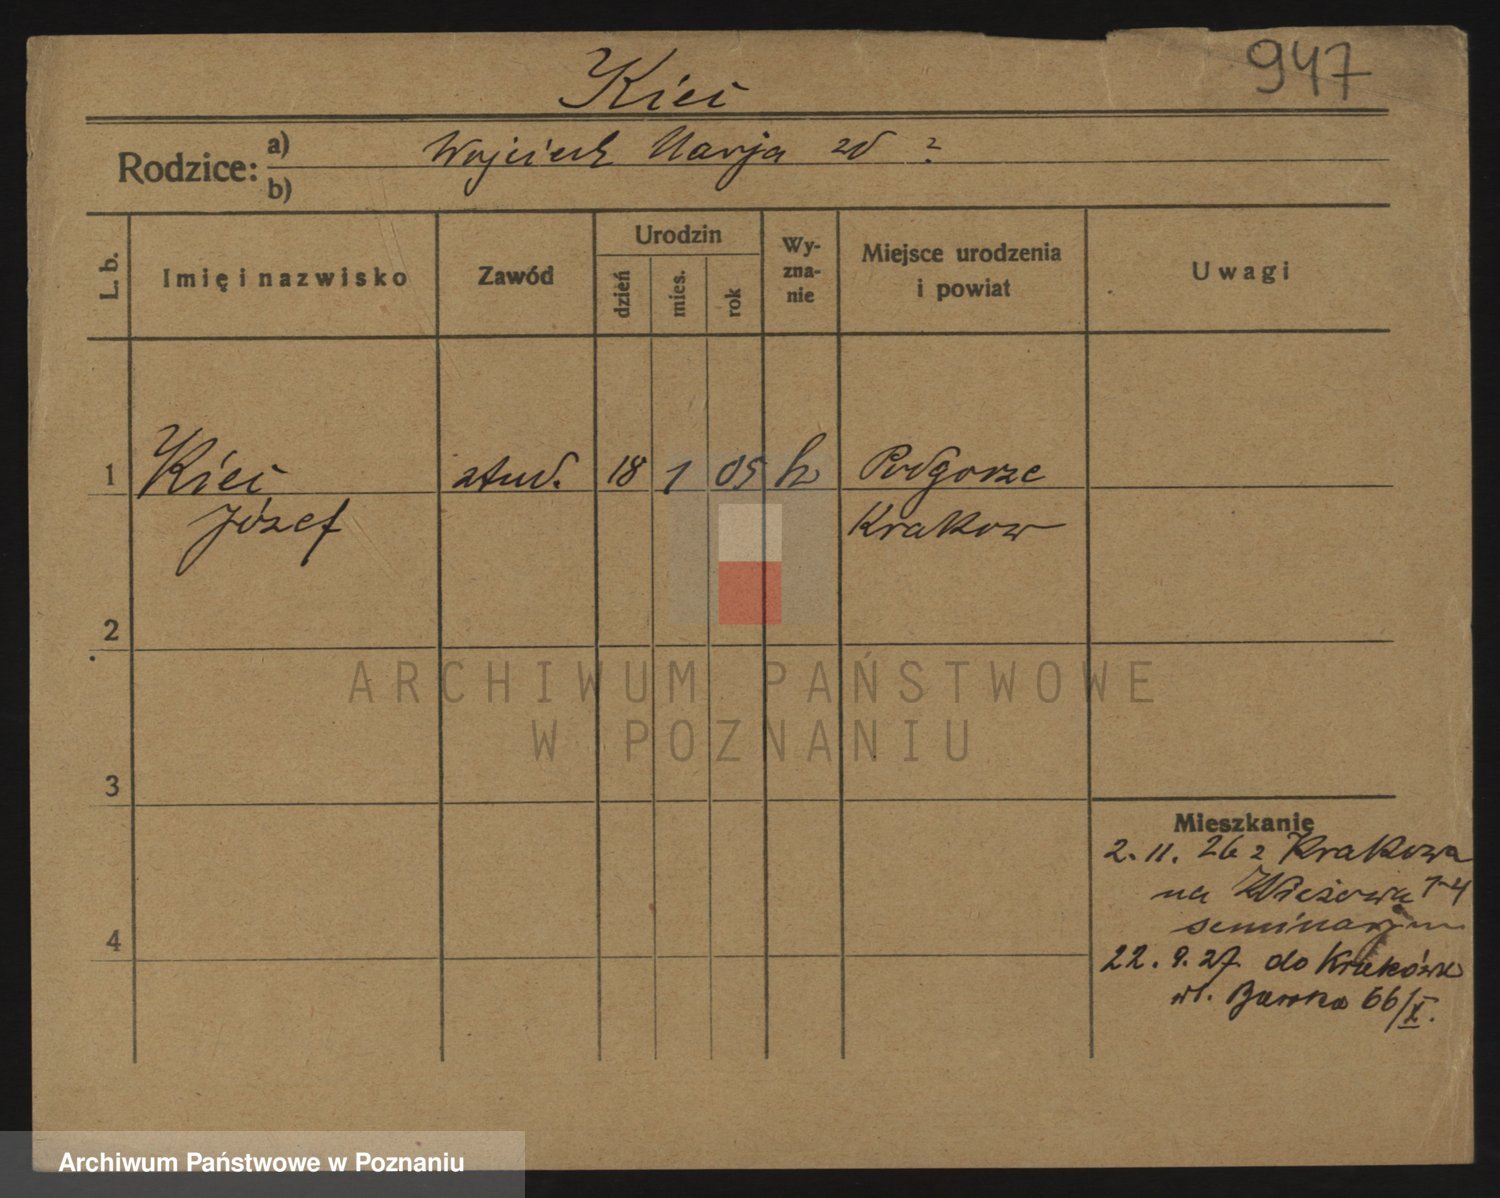 947
Kieć
Rodzice: a) Wojciech Marja zd ?
b)
L. b.
Imię i nazwisko
Zawód
Urodzin
dzień
mies.
rok
Wy-
zna-
nie
Miejsce urodzenia
i powiat
Uwagi
1 Kieć stud. 18 1 05 Podgorze
Józef Krakow
2
3
4
Mieszkanie
2. 11. 26 z Krakowa
na Wieżowa
seminarjum
22. 9. 27 do Kraków
66/X.
ARCHIWUM PAŃSTWOWE
W POZNANIU
Archiwum Państwowe w Poznaniu